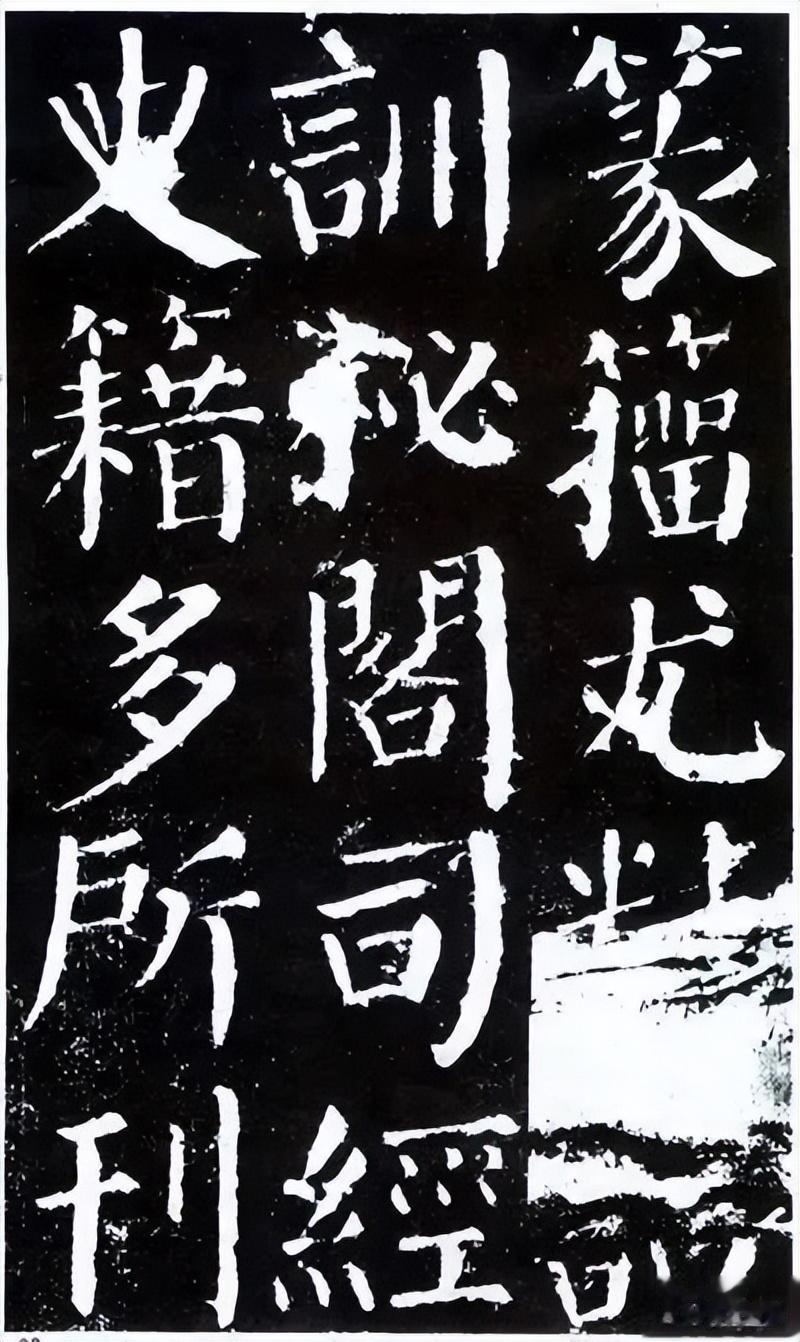 篆籀尤
訓秘閣司經
史籍多所刊